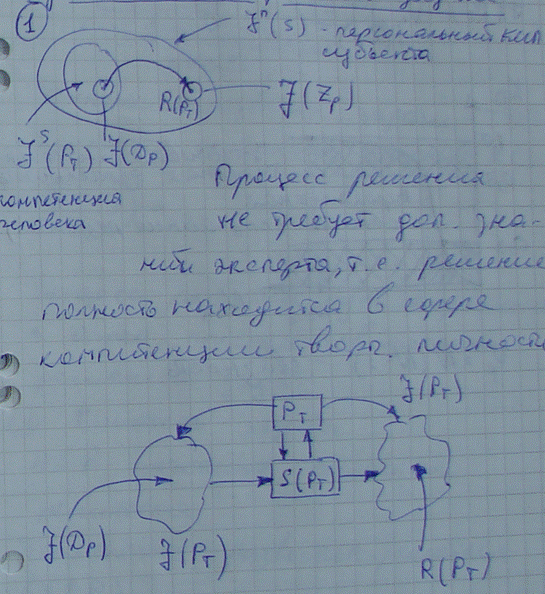 1
J^n(S) - персональный КИП
субъекта
R(P_T)
J(Z_P)
J^S(P_T) J(D_P)
компетенция
человека
Процесс решения
не требует доп. зна-
ний эксперта, т.е. решение
полность находится в сфере
компетенции творч. личность
P_T
J(P_T)
S(P_T)
J(D_P)
J(P_T)
R(P_T)